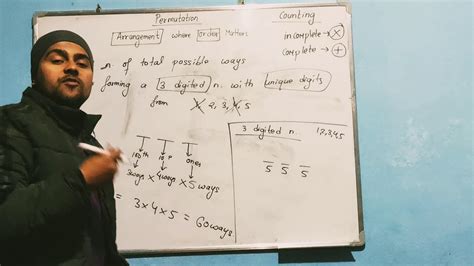 Permutation
Arrangement where order Matters
Counting
incomplete → ×
complete → +
n. of total possible ways
forming a 3 digited n. with unique digits
from 1, 2, 3, 4, 5
ones
3ways × 4ways × 5 ways
= 3×4×5 = 60ways
3 digited n. 1,2,3,4,5
5 5 5